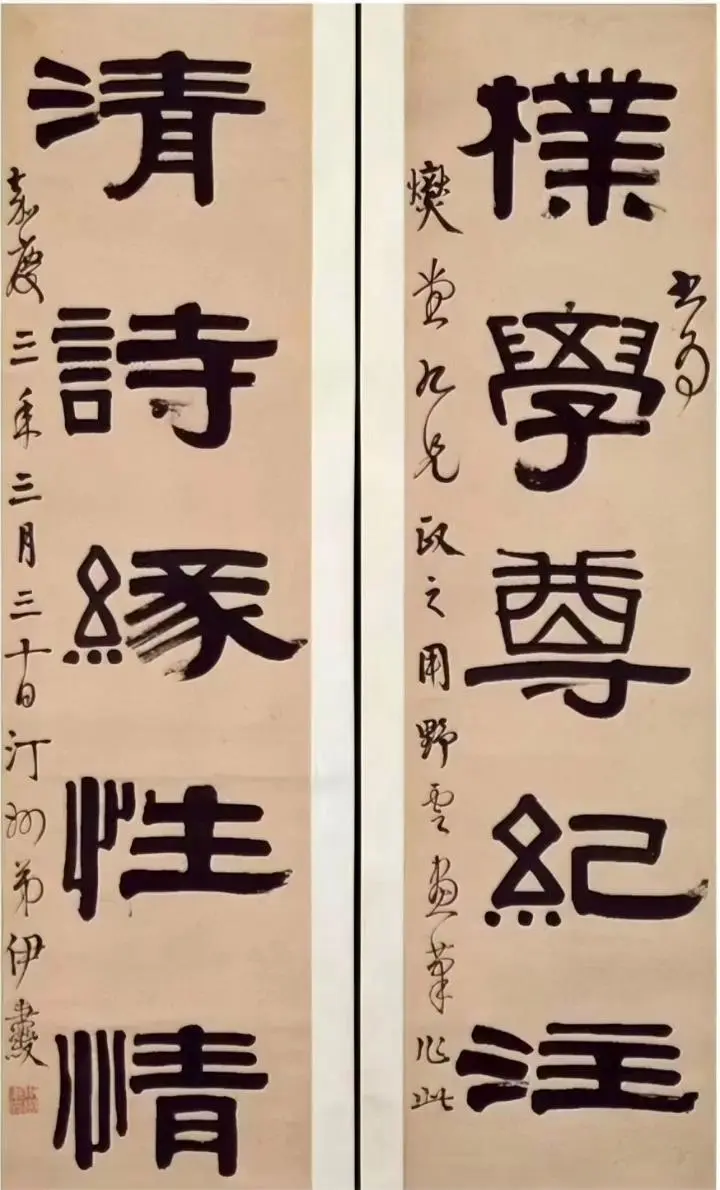 樸學尊紀注
書為
爕堂九兄政之用野雲畫筆作此
清詩緣性情
嘉慶三年三月三十日汀州弟伊秉綬